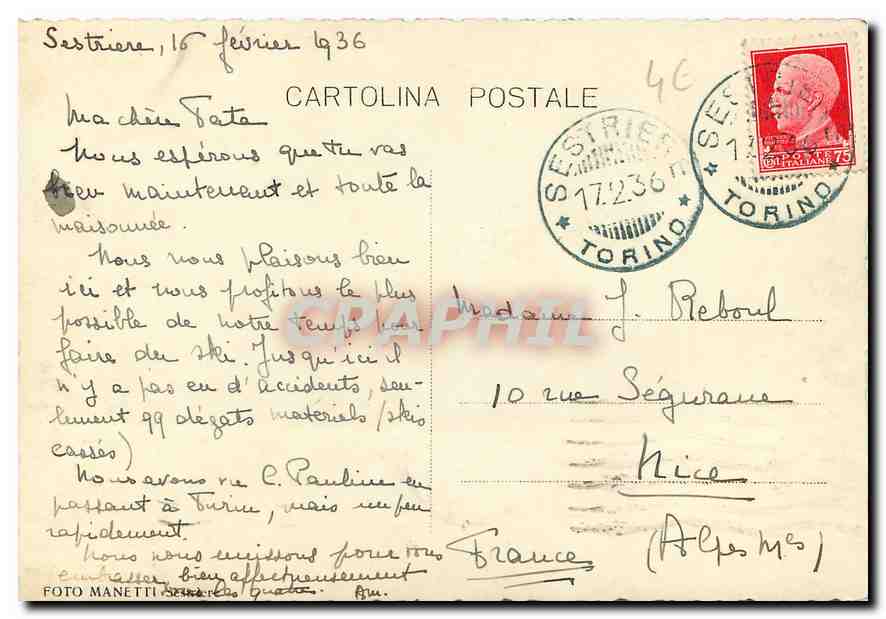 Sestriere, 16 février 1936
4€
CARTOLINA POSTALE
Ma chère Tata
Nous espérons que tu vas
bien maintenant et toute la
maisonnée.
Nous nous plaisons bien
ici et nous profitons le plus
possible de notre temps pour
faire du ski. Jusqu'ici il
n'y a pas eu d'accidents, seu-
lement qq dégats matériels (skis
cassés)
Nous avons vu C. Pauline en
passant à Turin, mais un peu
rapidement.
Nous nous unissons pour vous
embrasser bien affectueusement
tous les quatre. Am.
FOTO MANETTI Sestriere
SESTRIERE
17.2.36
TORINO
SESTRIERE
17.2.36
TORINO
POSTE
ITALIANE 75
Madame J. Reboul
10 rue Ségurane
Nice
(Alpes Mes)
France
CPAPHIL